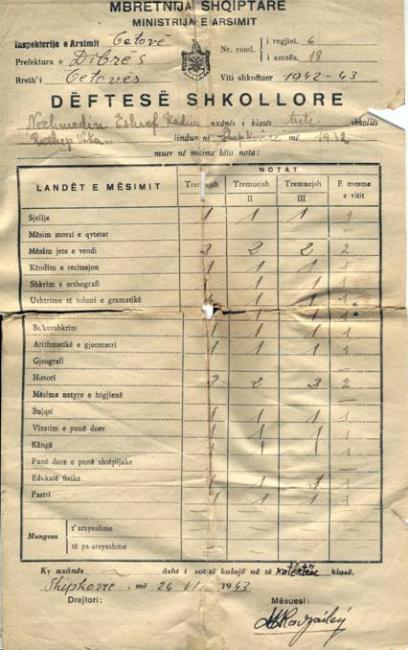 MBRETNIJA SHQIPTARE
MINISTRIJA E ARSIMIT
Inspektorija e Arsimit Tetovë
Prefektura e Dibrës
Rreth'i Tetovës
Nr. rend. { i regjist. 6
i amzës. 18
Viti shkolluer 1942-43
DËFTESË SHKOLLORE
Nexhmedin Eshref Kadiu nxânës i klasës tretë shkollës
lindun në Shipkovicë më 1932
muer në mësime këto nota:
LANDËT E MËSIMIT
NOTAT
Tremujsh Tremuejsh II Tremuejsh III E mesme e vitit
Sjellje 1 1 1 1
Mësim moral e qytetar — — — —
Mësim jete e vendi 2 2 2 2
Këndim e recitasjon 1 1 1 1
Shkrim e orthografi 1 1 1 1
Ushtrime të toluni e gramatikë 1 1 1 1
Bukurshkrim 1 1 1 1
Arithmetikë e gjeometri 1 1 1 1
Gjeografi
Histori 3 2 3 2
Mësime natyre e higjienë
Bujqsi 1 1 1 1
Vizatim e punë dore 1 1 1 1
Kângë 1 1 1 1
Punë dore e punë shtëpijake
Edukatë fizike 1 1 1 1
Pastri 1 1 1 1
Mungesa { t'arsyeshme
të pa-arsyeshme
Ky nxânës âsht i sot të kalojë në të katërtën klasë.
Shipkovicë, më 26 VI 1943
Drejtori: Mësuesi: